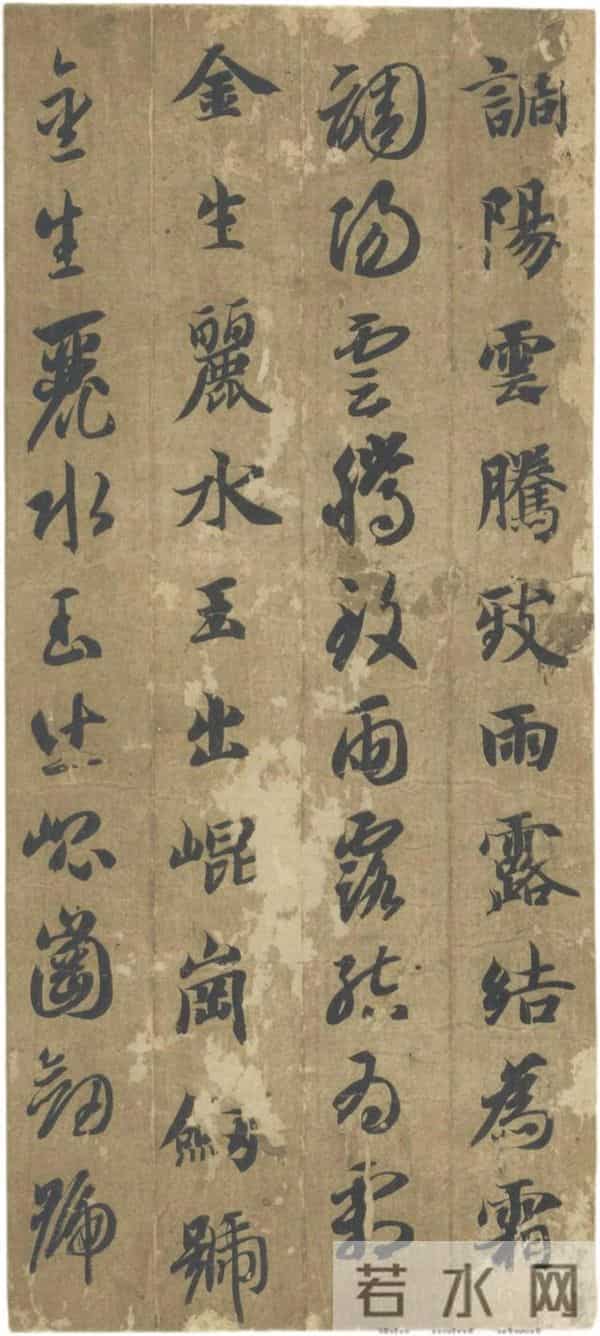 調陽雲騰致雨露結為霜
調陽雲騰致雨露結為霜
金生麗水玉出崐崗劒號
金生麗水玉出崐崗劒號
若水网